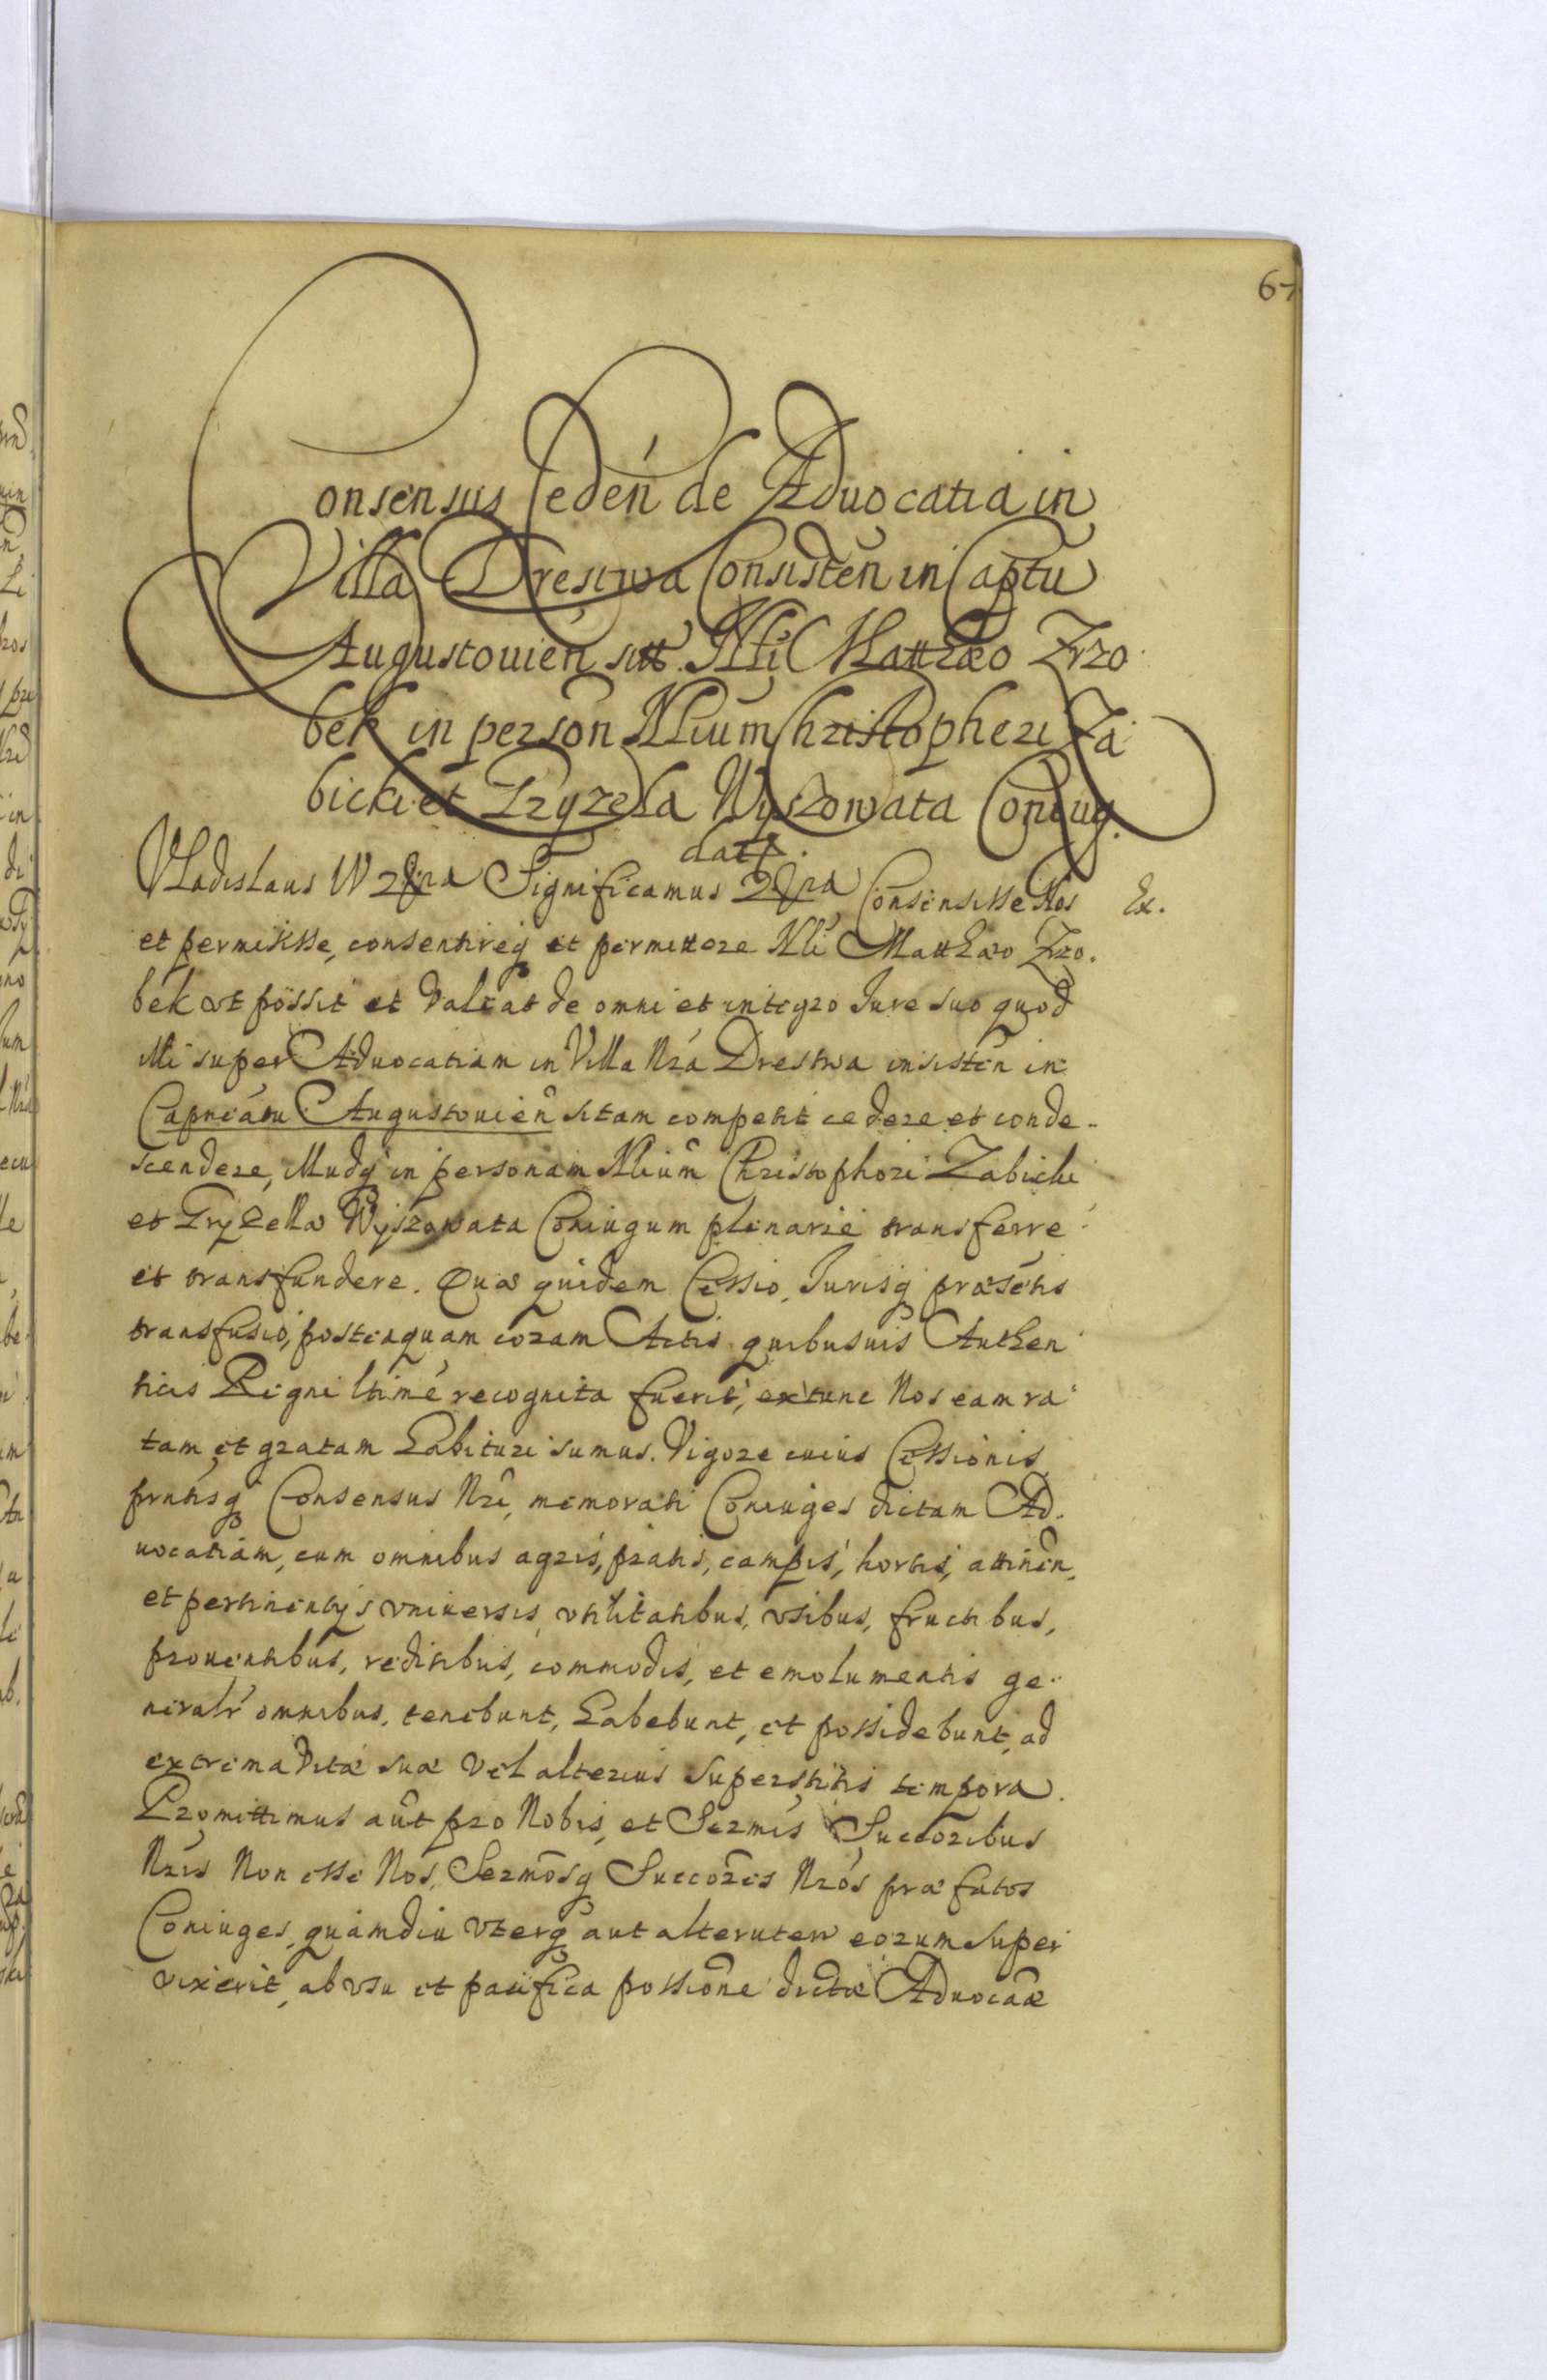 67
Consensus Ceden̄ de Aduocatia in
Villa Drestwa Consisten̄ in Captu
Augustouien̄ sitt. Nli Matthæo Zrzo
bek in person̄ Nlium Christopheri Za
bicki et Gryzella Wyszowata Coniug.
dat.
Vladislaus IV Significamus Consensisse Nos Ex.
et permisisse, consentireq et permittere Nli Matthæo Zrzo.
bek vt possit et valeat de omni et integro Iure suo quod
illi super Aduocatiam in Villa Nrá Drestwa insisten̄ in
Capneátu Augustouien̄ sitam competit cedere et conde-
scendere, illudq in personam Nlium̄ Christophori Zabicki
et Gryzella Wyszowata Coniugum plenarie transferre
et transfundere. Quæ quidem Cessio, Iurisq præséntis
transfusio, posteaquam coram Actis quibusuis Authen
ticis Regni ltimé recognita fuerit, extunc Nos eam ra
tam et gratam habituri sumus. Vigore cuius Cessionis
prntisq Consensus Nri, memorati Coniuges dictam Ad.
uocatiam, cum omnibus agris, pratis, campis, hortis, attinen̄,
et pertinentijs vniuersis, vtilitatibus, vsibus, fructibus,
prouentibus, reditibus, commodis, et emolumentis ge-
neralr omnibus, tenebunt, habebunt, et possidebunt, ad
extrema vitæ suæ vel alterius superstitis tempora.
Promittimus aût pro Nobis, et Sermis Succoribus
Nris Non esse Nos, Sermōsq Succorēs Nros præfatos
Coniuges, quamdiu vterq aut alteruter eorum super
vixerit, ab vsu et pacifica possiōne dictæ Aduocaæ